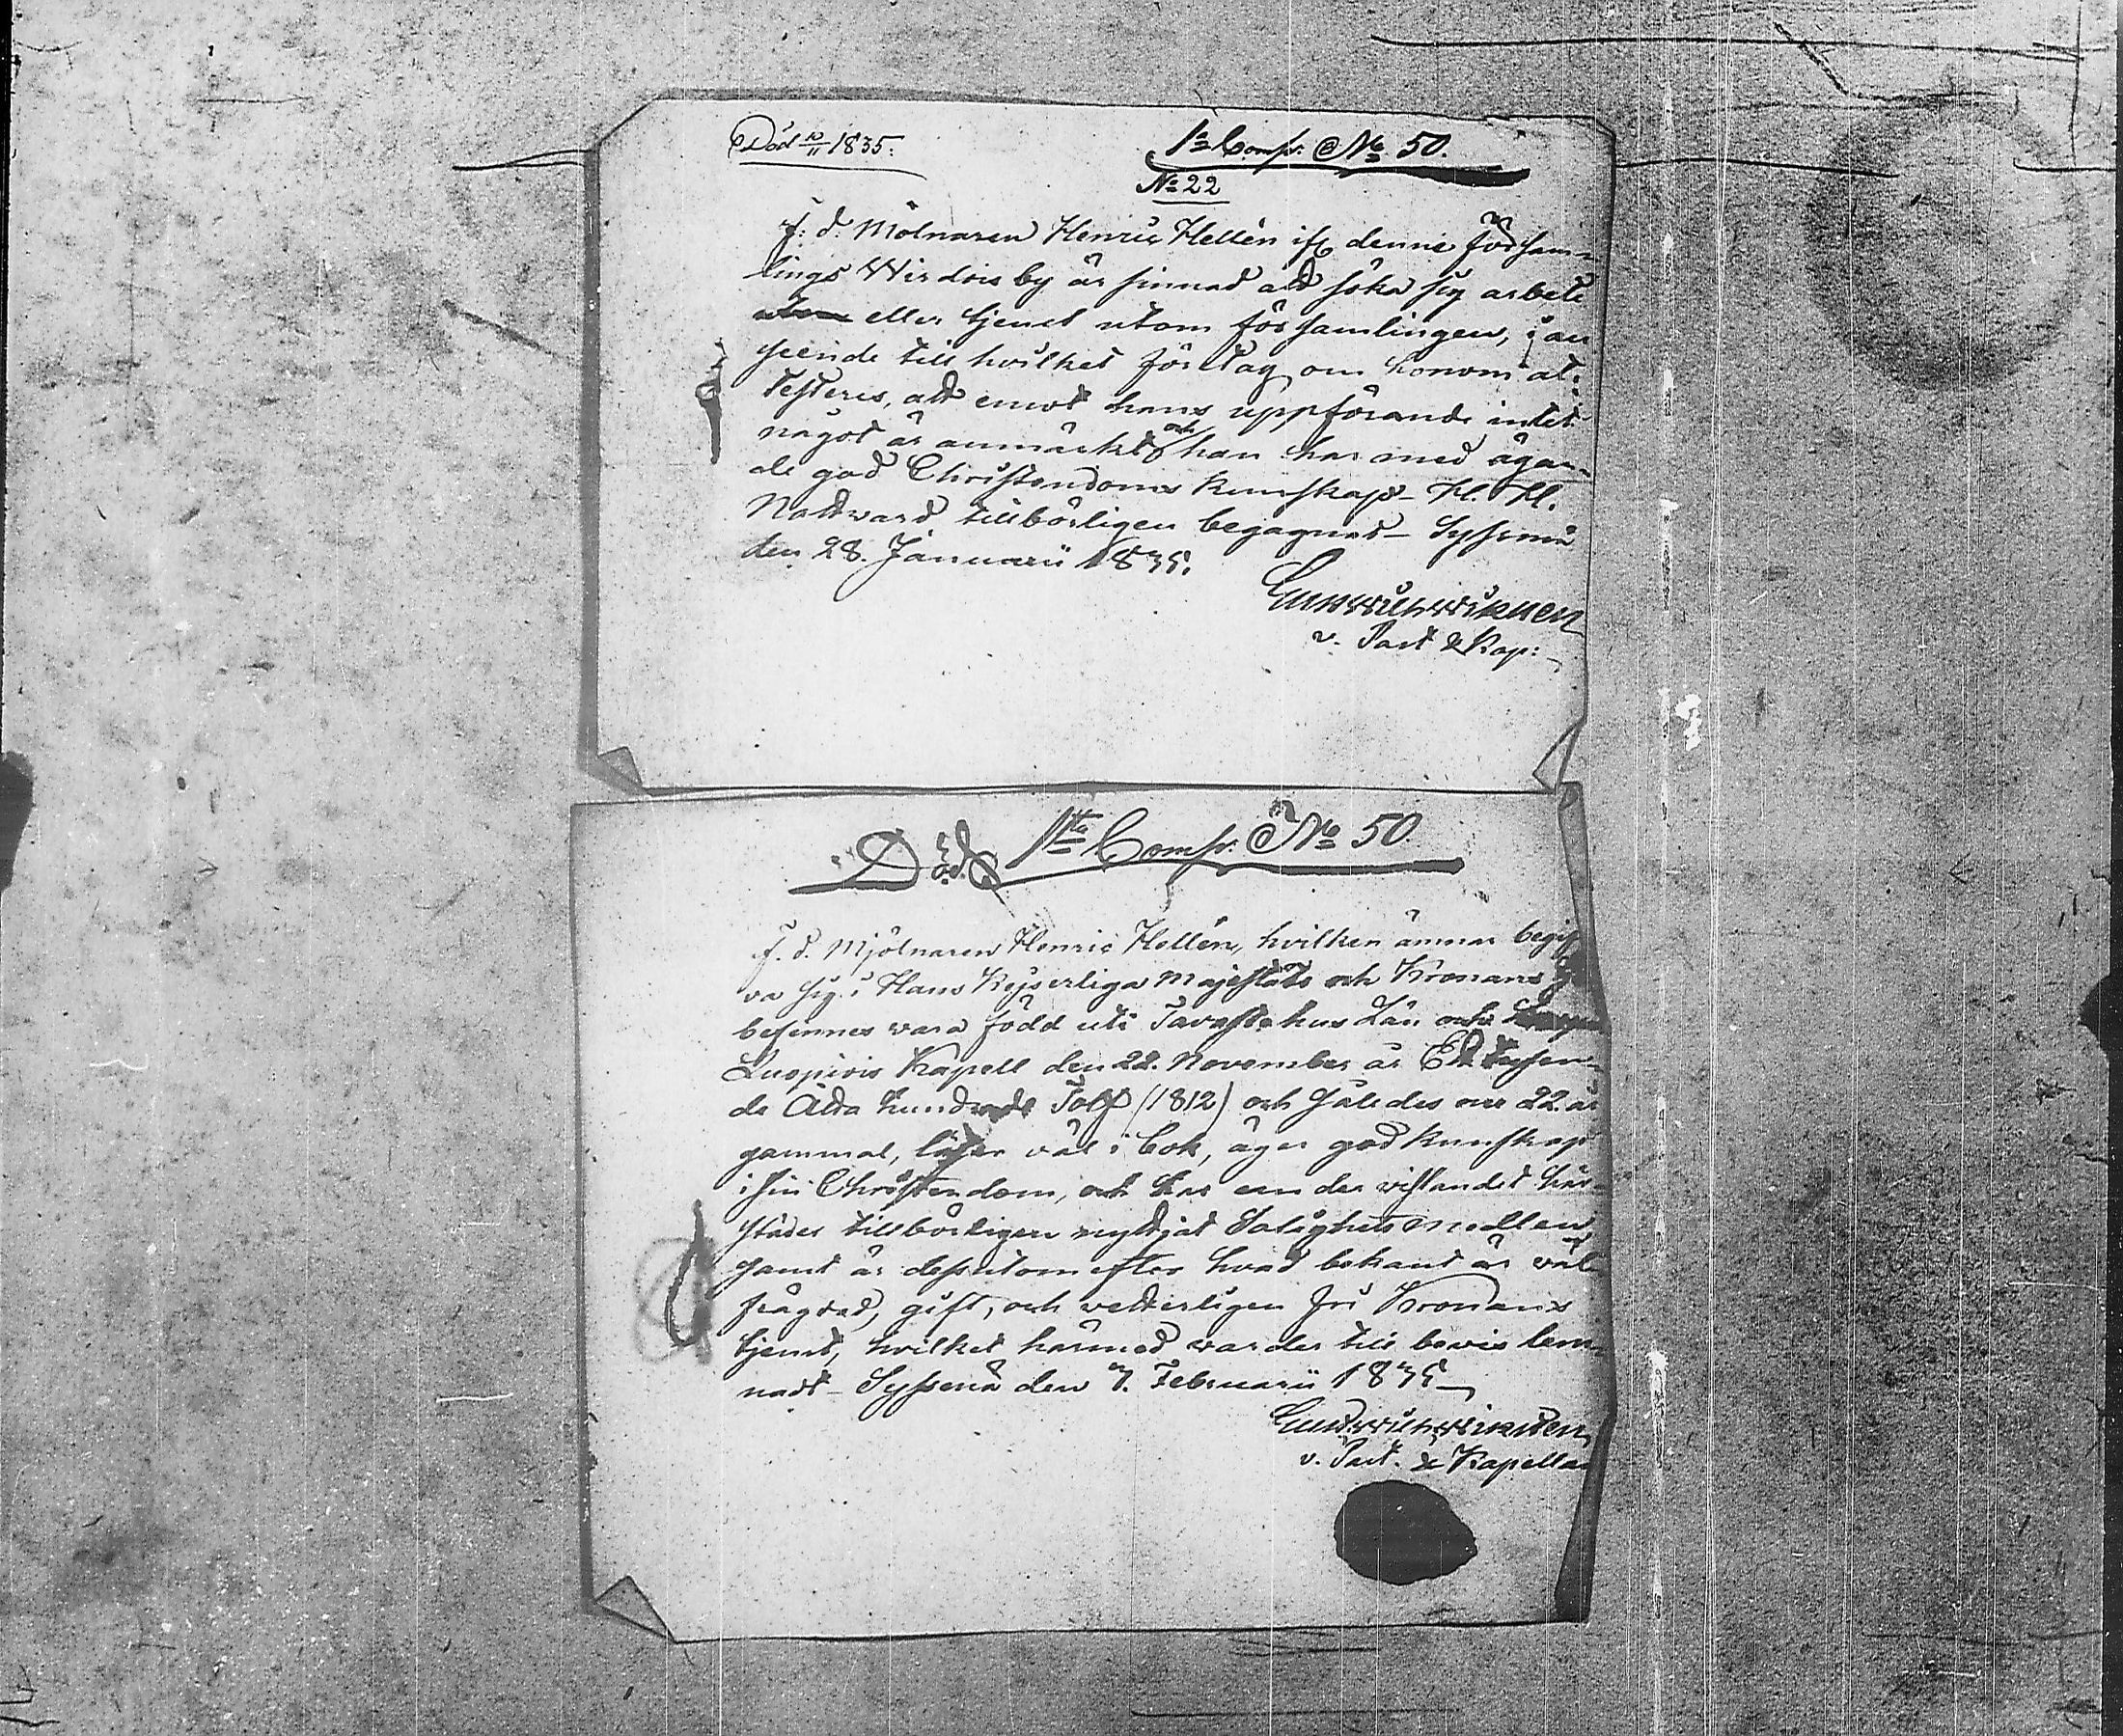 Död 10/11 1835.
1a Comp: No 50.
No 22
f. d. Mölnaren Henric Hellén ifr denne Försam-
lings Wirdois by är sinnad att söka sig arbete
eller tjenst utom församlingen, i an
seende till hvilket företag om honom at-
testeres, att emot hans uppförande intet
något är anmärkt och han har med ägan-
de god Christendoms kunskap H. H.
Nattward tillbörligen begagnat – Syssmä
den 28. Januarii 1835.
v. Past & Kap:
Död 1sta Comp. No 50.
f. d. Mjölnaren Henric Hellén, hvilken ämnar begif
va sig i Hans Kejserliga Majestäts och Kronans
befinnes vara född uti Tavastehus Län och
Luopiois Kapell den 22. November år Ett tusen-
de Åtta hundrade Tolf (1812) och således nu 22. år
gammal, läser väl i bok, äger god kunskap
i sin Christendom, och har under vistandet här-
städes tillbörligen nyttjat Salighets medlen
samt är dessutom efter hvad bekant är väl
frägdad, gift, och vetterligen fri Kronans
tjenst, hvilket härmed warder till bevis lem-
nadt – Syssmä den 7. Februarii 1835
v. Past. & Kapellan